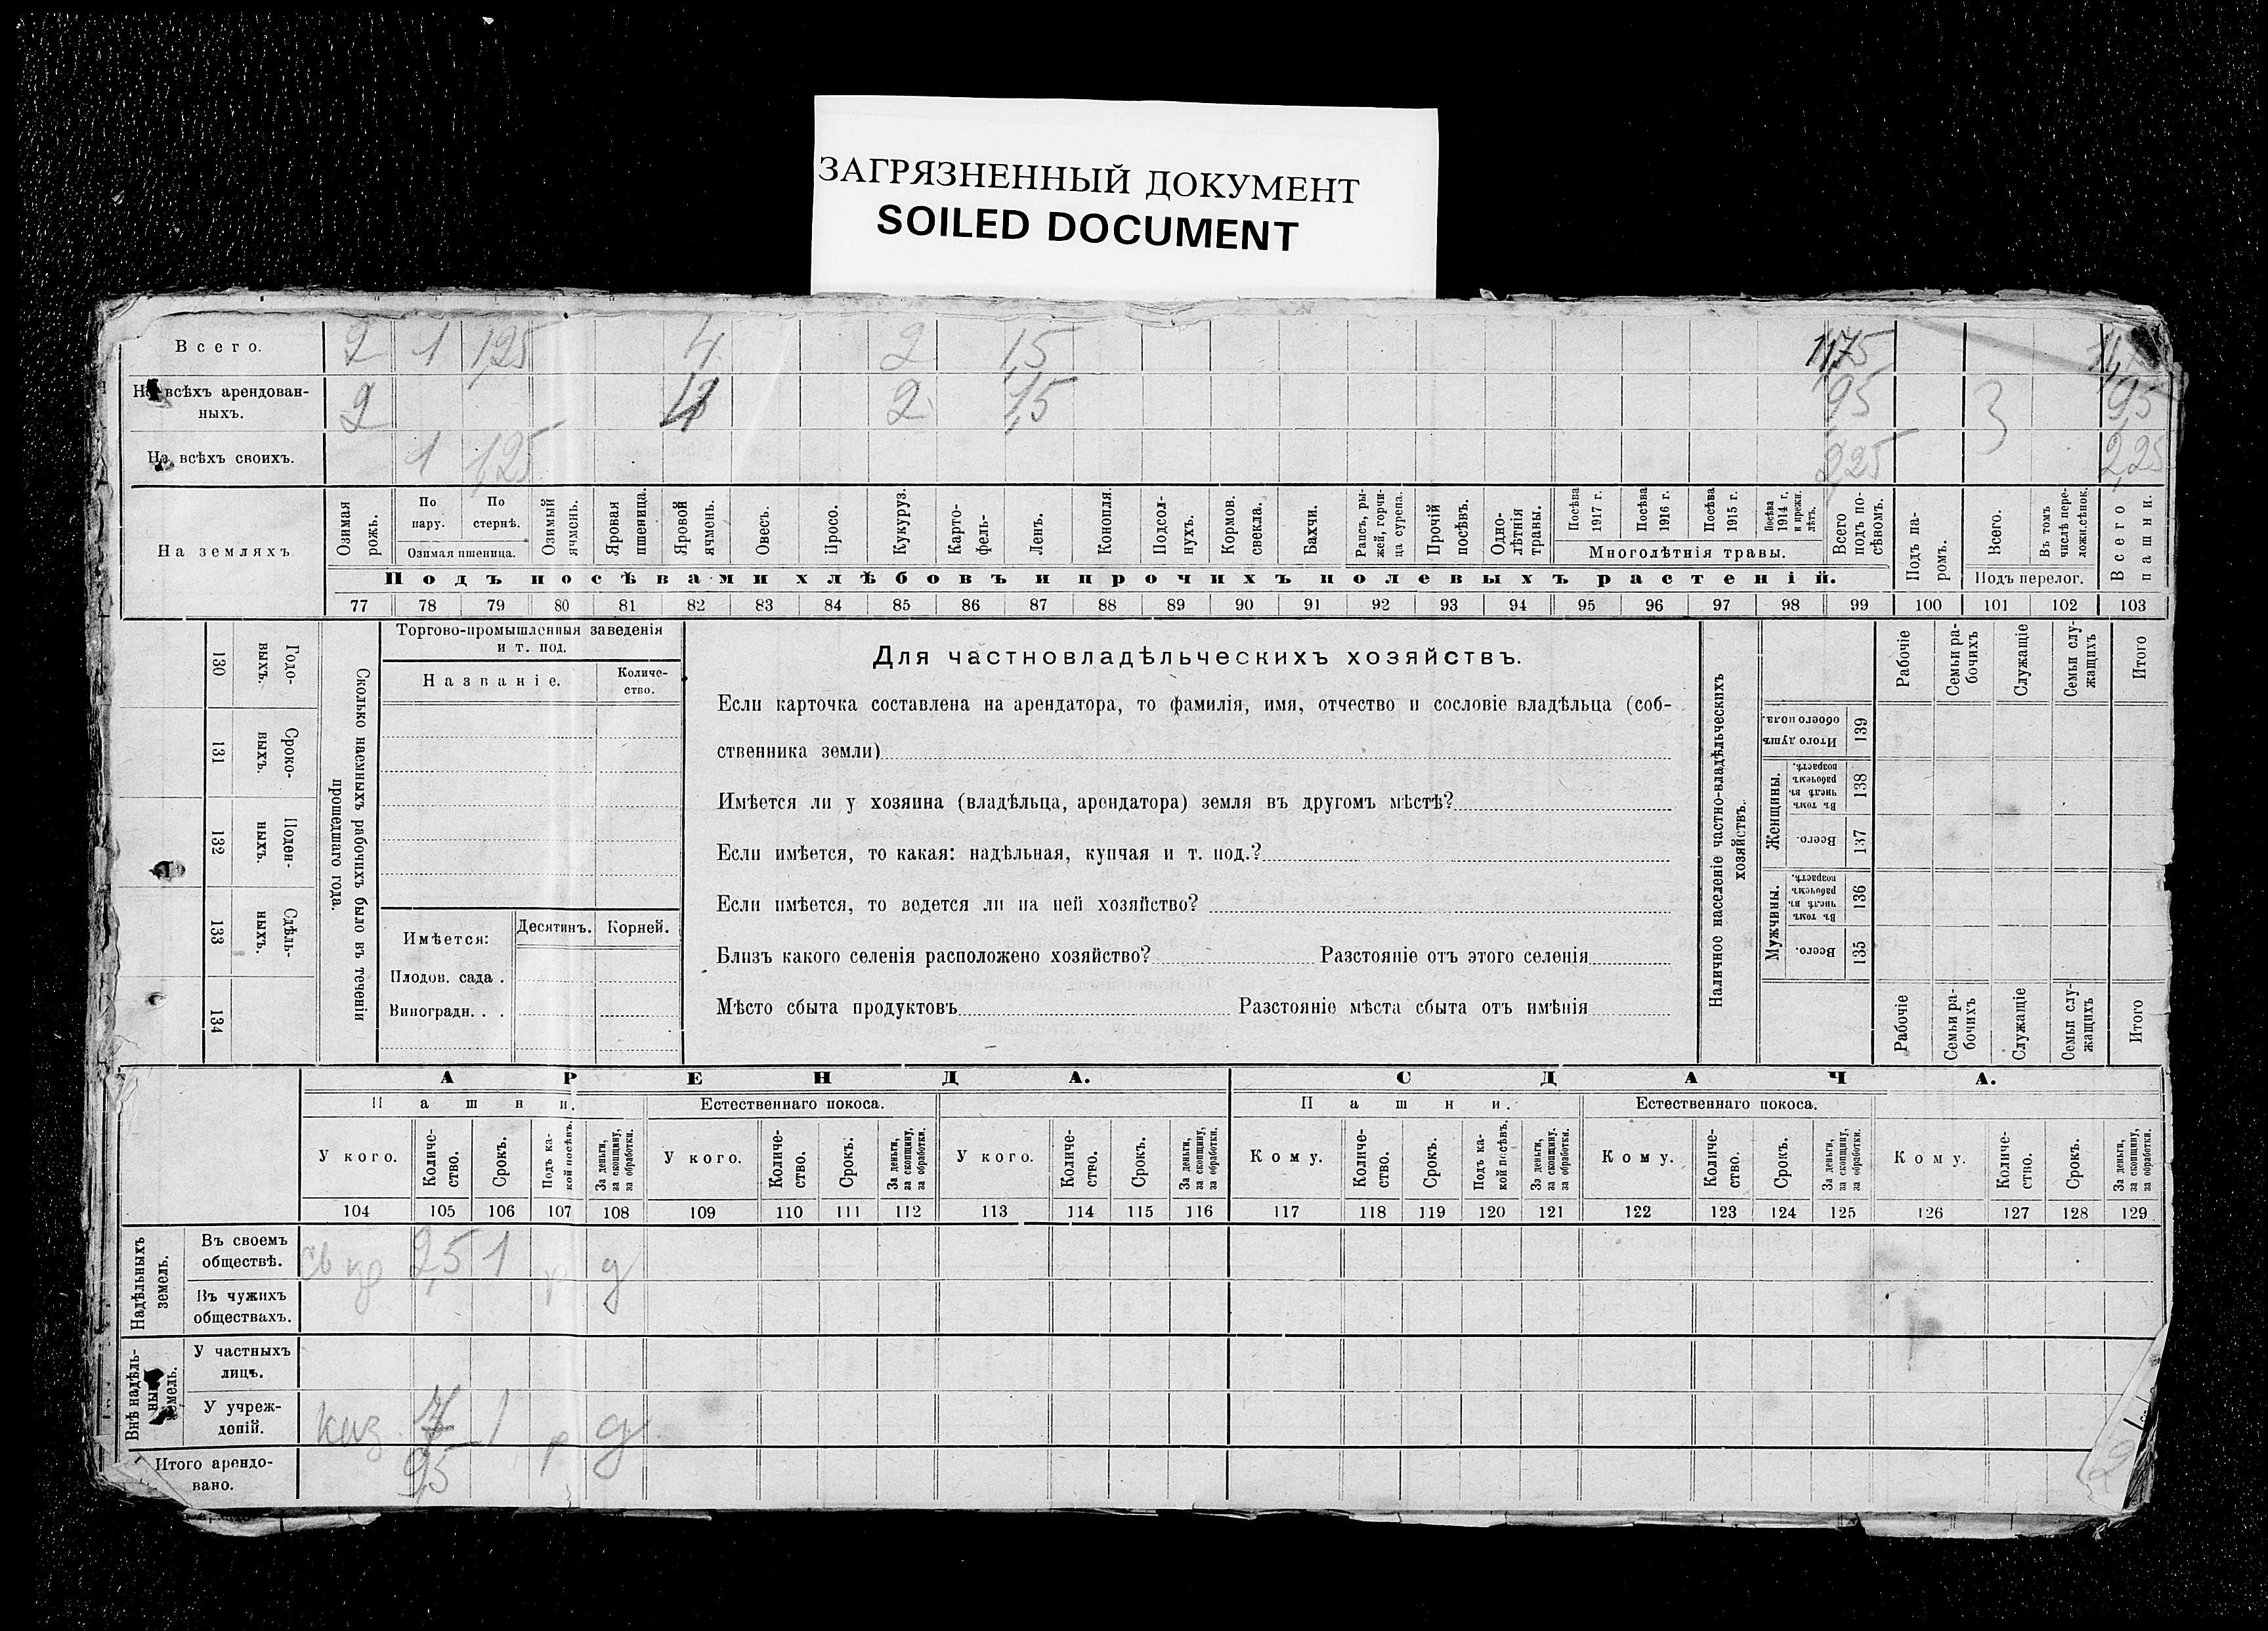 ЗАГРЯЗНЕННЫЙ ДОКУМЕНТ
SOILED DOCUMENT
Всего. 2 1 1,25 4 2 1,5 11,75
На всѣхъ арендован-
ныхъ. 2 4 2 1,5 9,5 3 9,5
На всѣхъ своихъ. 1 1,25 2,25 2,25
На земляхъ.
Озимая рожь.
По пару.
По стернѣ.
Озимая пшеница.
Озимый ячмень.
Яровая пшеница.
Яровой ячмень.
Овесъ.
Просо.
Кукуруз.
Карто-
фель.
Ленъ.
Конопля.
Подсол-
нухъ.
Кормов. свекла.
Бахчи.
Рапсъ, ры-
жей, горчи-
ца сурепа.
Прочій посѣвъ.
Одно-
лѣтнія травы.
Посѣва 1917 г.
Посѣва 1916 г.
Посѣва 1915 г.
Посѣва 1914 г. и прежн. лѣтъ.
Многолѣтнія травы.
Всего подъ по-
сѣвомъ.
Подъ па-
ромъ.
Всего.
Въ томъ числѣ пере-
ложн.сѣнок.
Подъ перелог.
Всего пашни.
Подъ посѣвами хлѣбовъ и прочихъ полевыхъ растеній.
77 78 79 80 81 82 83 84 85 86 87 88 89 90 91 92 93 94 95 96 97 98 99 100 101 102 103
130 Годо-
выхъ.
131 Сроко-
выхъ.
132 Поден-
ныхъ.
133 Сдѣль-
ныхъ.
134
Сколько наемныхъ рабочихъ было въ теченіи
прошедшаго года.
Торгово-промышленныя заведенія
и т. под.
Названіе. Количе-
ство.
Имѣется: Десятинъ. Корней.
Плодов. сада .
Виноградн. . .
Для частновладѣльческихъ хозяйствъ.
Если карточка составлена на арендатора, то фамилія, имя, отчество и сословіе владѣльца (соб-
ственника земли)
Имѣется ли у хозяина (владѣльца, арендатора) земля въ другомъ мѣстѣ?
Если имѣется, то какая: надѣльная, купчая и т. под.?
Если имѣется, то ведется ли на ней хозяйство?
Близъ какого селенія расположено хозяйство? Разстояніе отъ этого селенія
Мѣсто сбыта продуктовъ Разстояніе мѣста сбыта отъ имѣнія
Наличное населеніе частно-владѣльческихъ
хозяйствъ.
Рабочіе
Семьи ра-
бочихъ
Служащіе
Семьи слу-
жащихъ
Итого
Итого душъ обоего пола. 139
Женщины.
Въ томъ числѣ въ рабочемъ возрастѣ. 138
Всего. 137
Мужчины.
Въ томъ числѣ въ рабочемъ возрастѣ. 136
Всего. 135
Рабочіе
Семьи ра-
бочихъ
Служащіе
Семьи слу-
жащихъ
Итого
АРЕНДА. СДАЧА.
Пашни. Естественнаго покоса. Пашни. Естественнаго покоса.
У кого. Количе-
ство. Срокъ. Подъ ка-
кой посѣвъ. За деньги, за скопщину, за обработки.
У кого. Количе-
ство. Срокъ. За деньги, за скопщину, за обработки.
У кого. Количе-
ство. Срокъ. За деньги, за скопщину, за обработки.
Кому. Количе-
ство. Срокъ. Подъ ка-
кой посѣвъ. За деньги, за скопщину, за обработки.
Кому. Количе-
ство. Срокъ. За деньги, за скопщину, за обработки.
Кому. Количе-
ство. Срокъ. За деньги, за скопщину, за обработки.
104 105 106 107 108 109 110 111 112 113 114 115 116 117 118 119 120 121 122 123 124 125 126 127 128 129
Надѣльныхъ
земель.
Въ своемъ
обществѣ. 2,5 1 д
Въ чужихъ
обществахъ.
Внѣ надѣль-
земель.
У частныхъ
лицъ.
У учреж-
деній. каз. 7 1 р д
Итого арендо-
вано. 9,5